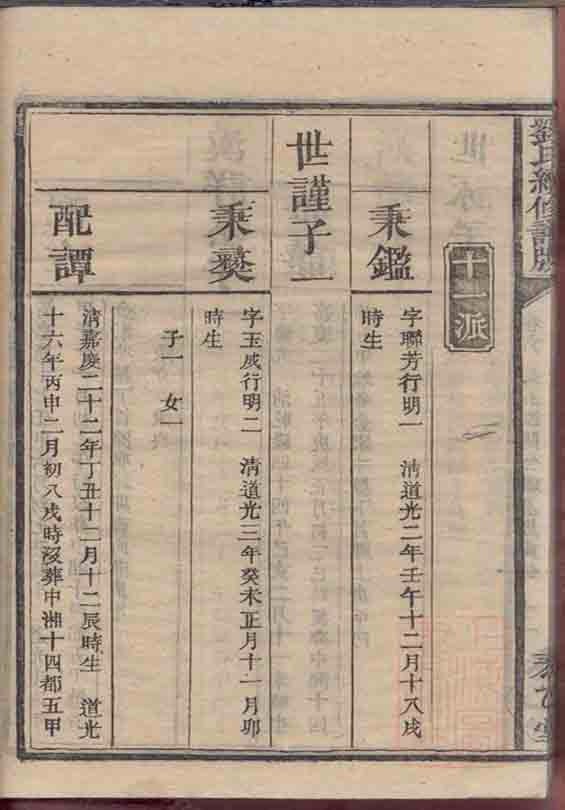 劉氏續修譜牒
十一派
秉鑑
字聯芳行明一　清道光二年壬午十二月十八戌
時生
世謹子一
秉彝
字玉成行明二　清道光三年癸未正月十一月卯
時生
子一　女一
配譚
清嘉慶二十二年丁丑十二月十二辰時生　道光
十六年丙申二月初八戌時沒葬中湘十四都五甲